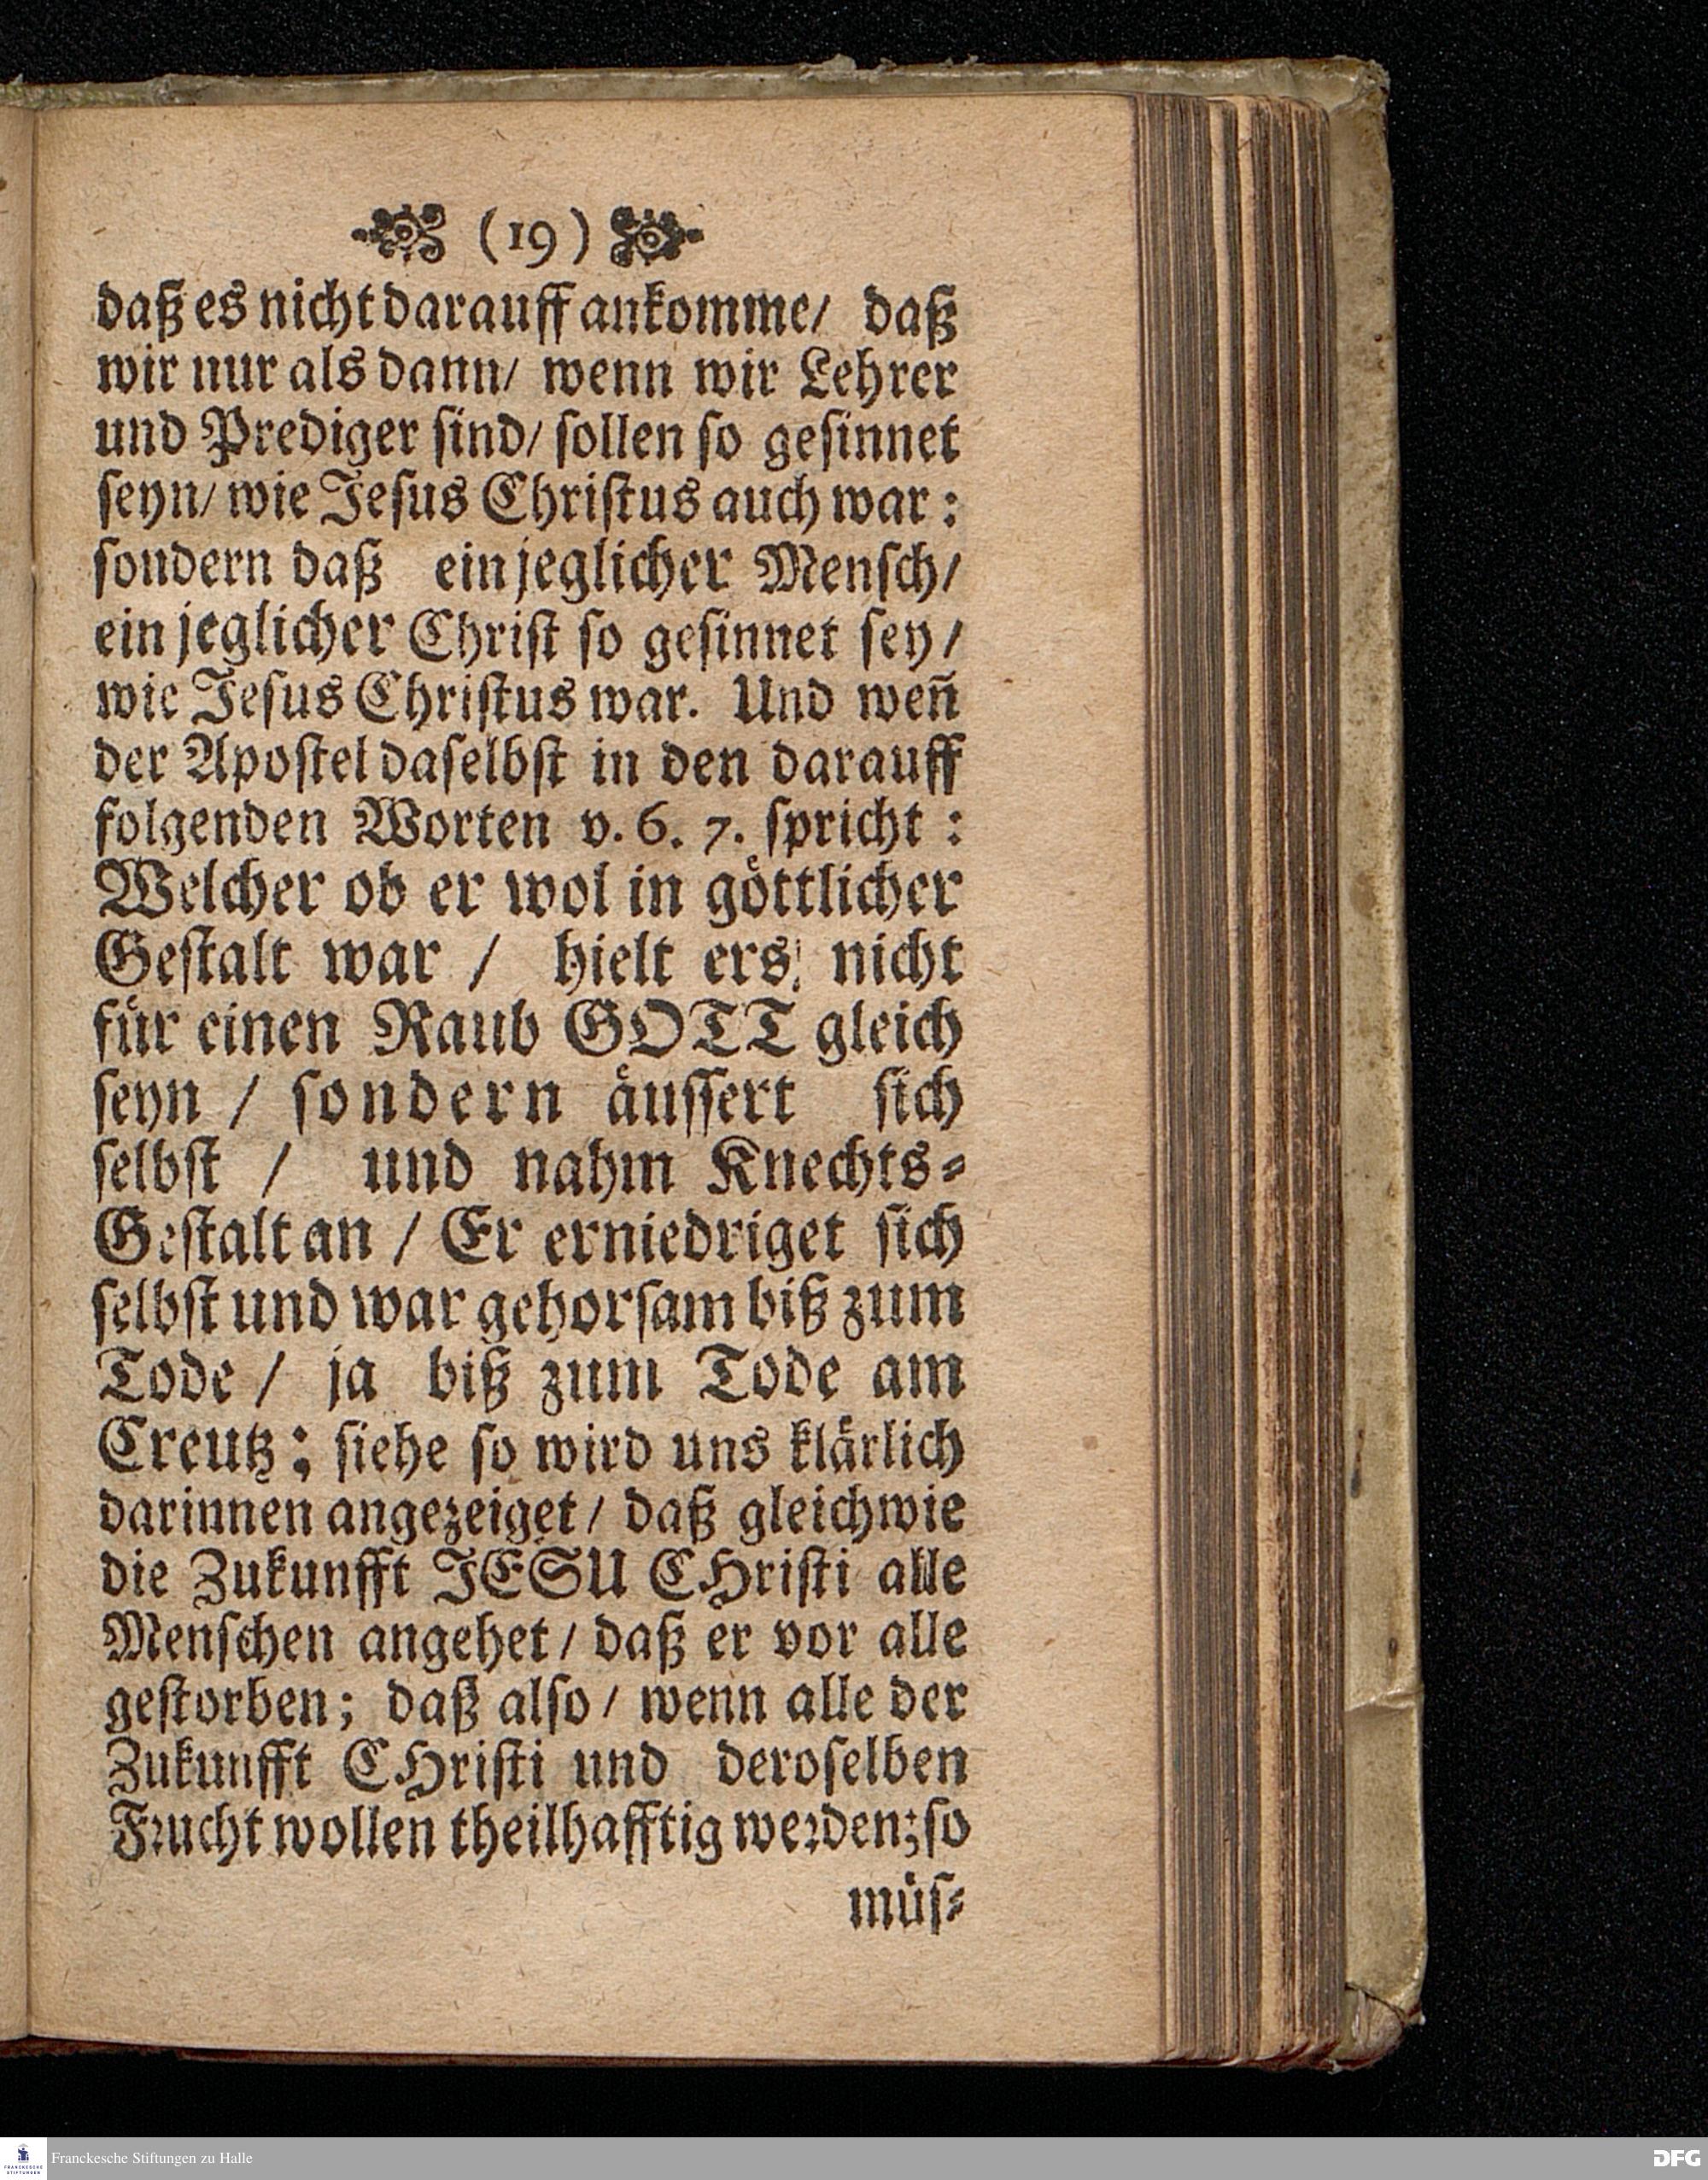 (19)
daß es nicht darauff ankomme/ daß
wir nur als dann/ wenn wir Lehrer
und Prediger sind/ sollen so gesinnet
seyn/ wie Jesus Christus auch war:
sondern daß ein jeglicher Mensch/
ein jeglicher Christ so gesinnet sey/
wie Jesus Christus war. Und weñ
der Apostel daselbst in den darauff
folgenden Worten v. 6. 7. spricht:
Welcher ob er wol in göttlicher
Gestalt war / hielt ers nicht
für einen Raub GOTT gleich
seyn / sondern äussert sich
selbst / und nahm Knechts-
Gestalt an / Er erniedriget sich
selbst und war gehorsam biß zum
Tode / ja biß zum Tode am
Creutz; siehe so wird uns klärlich
darinnen angezeiget / daß gleichwie
die Zukunfft JESU CHristi alle
Menschen angehet / daß er vor alle
gestorben; daß also / wenn alle der
Zukunfft CHristi und deroselben
Frucht wollen theilhafftig werden; so
müs-
FRANCKESCHE
STIFTUNGEN
Franckesche Stiftungen zu Halle
DFG